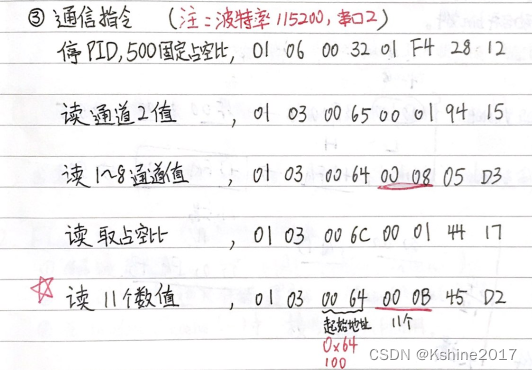 ③ 通信指令 (注:波特率115200,串口2)
停PID,500固定占空比, 01 06 00 32 01 F4 28 12
读通道2值 , 01 03 00 65 00 01 94 15
读1~8通道值 , 01 03 00 64 00 08 05 D3
读取占空比 , 01 03 00 6C 00 01 44 17
☆ 读11个数值 , 01 03 00 64 00 0B 45 D2
起始地址 11个
0x64
100
CSDN @Kshine2017